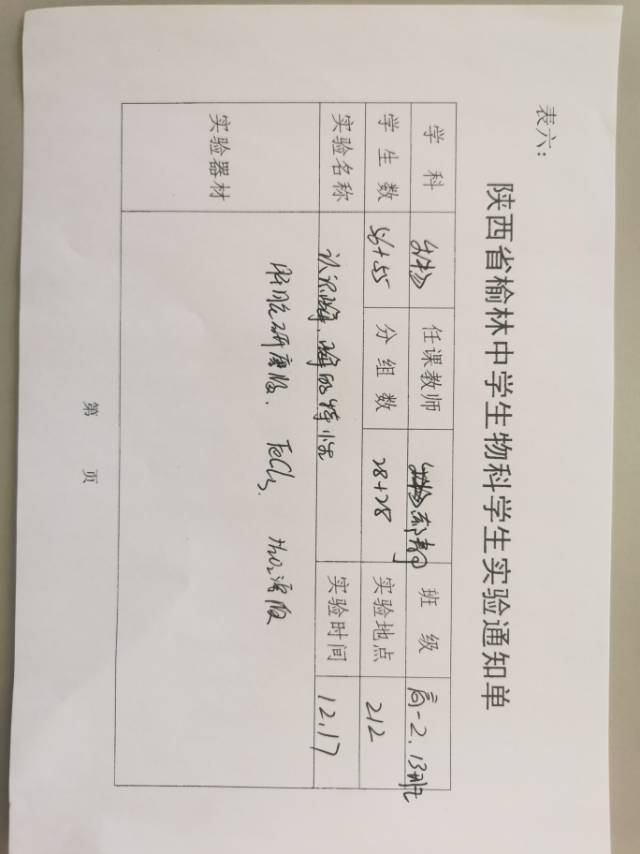 表六：
陕西省榆林中学生物科学生实验通知单
学科 生物 任课教师 班级 高一2、13班
学生数 56+55 分组数 28+28 实验地点 212
实验名称 认识酶、酶的特性 实验时间 12.17
实验器材
肝脏研磨液、 FeCl3、 H2O2溶液
第 页